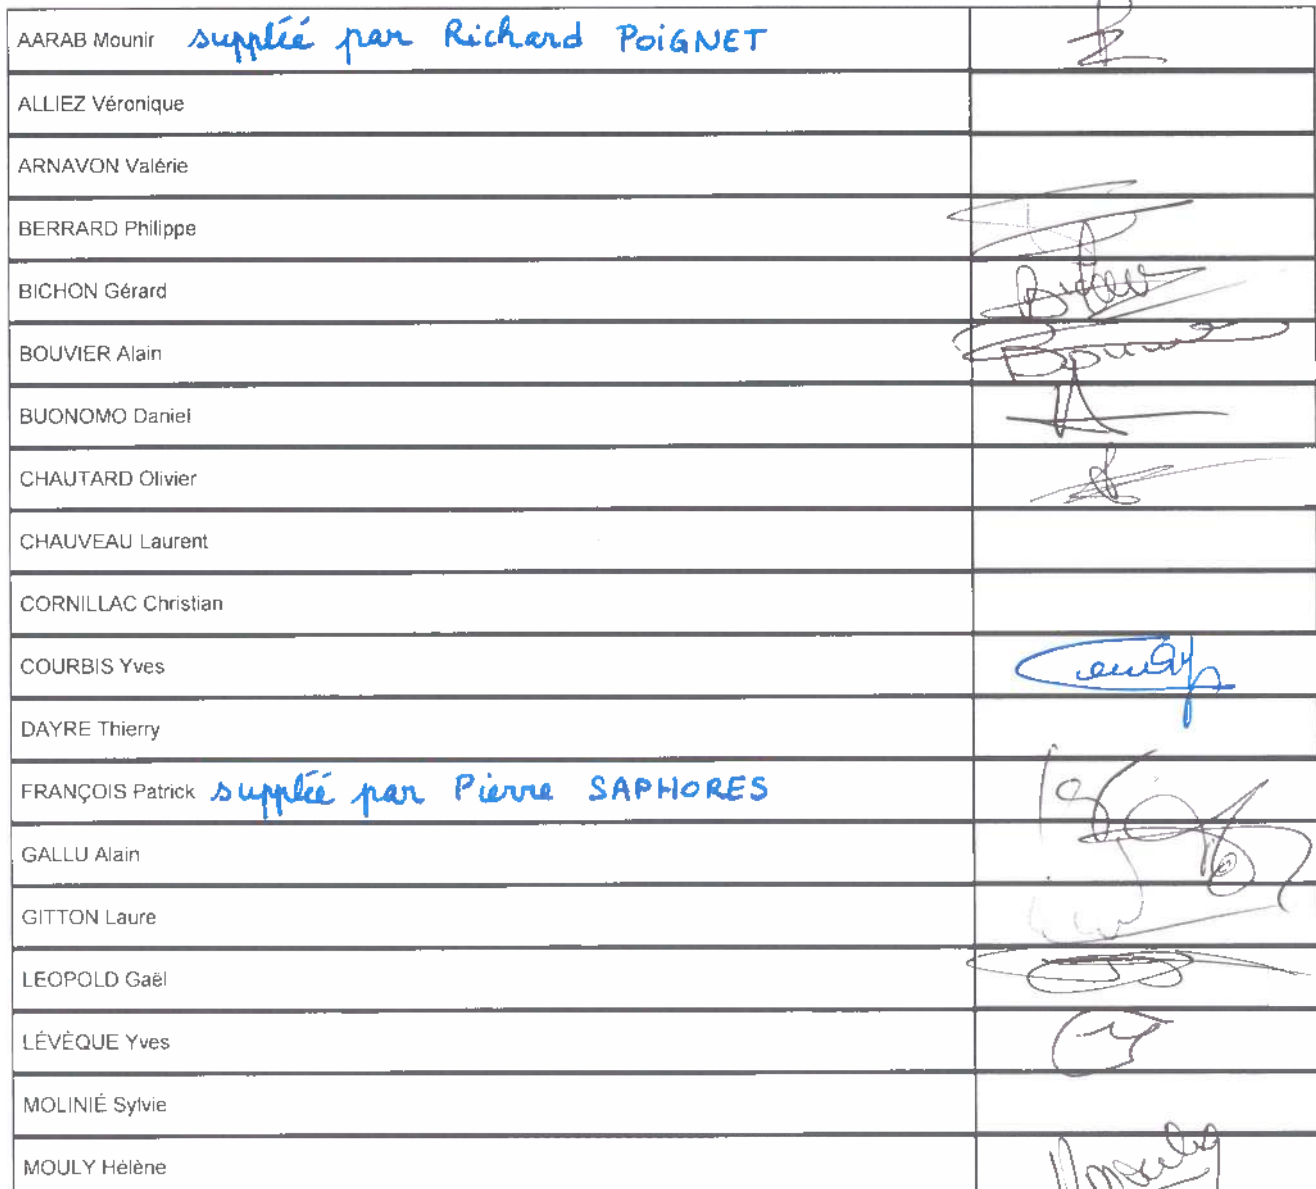 AARAB Mounir suppléé par Richard POIGNET
ALLIEZ Véronique
ARNAVON Valérie
BERRARD Philippe
BICHON Gérard
BOUVIER Alain
BUONOMO Daniel
CHAUTARD Olivier
CHAUVEAU Laurent
CORNILLAC Christian
COURBIS Yves
DAYRE Thierry
FRANÇOIS Patrick suppléé par Pierre SAPHORES
GALLU Alain
GITTON Laure
LEOPOLD Gaël
LÉVÈQUE Yves
MOLINIÉ Sylvie
MOULY Hélène